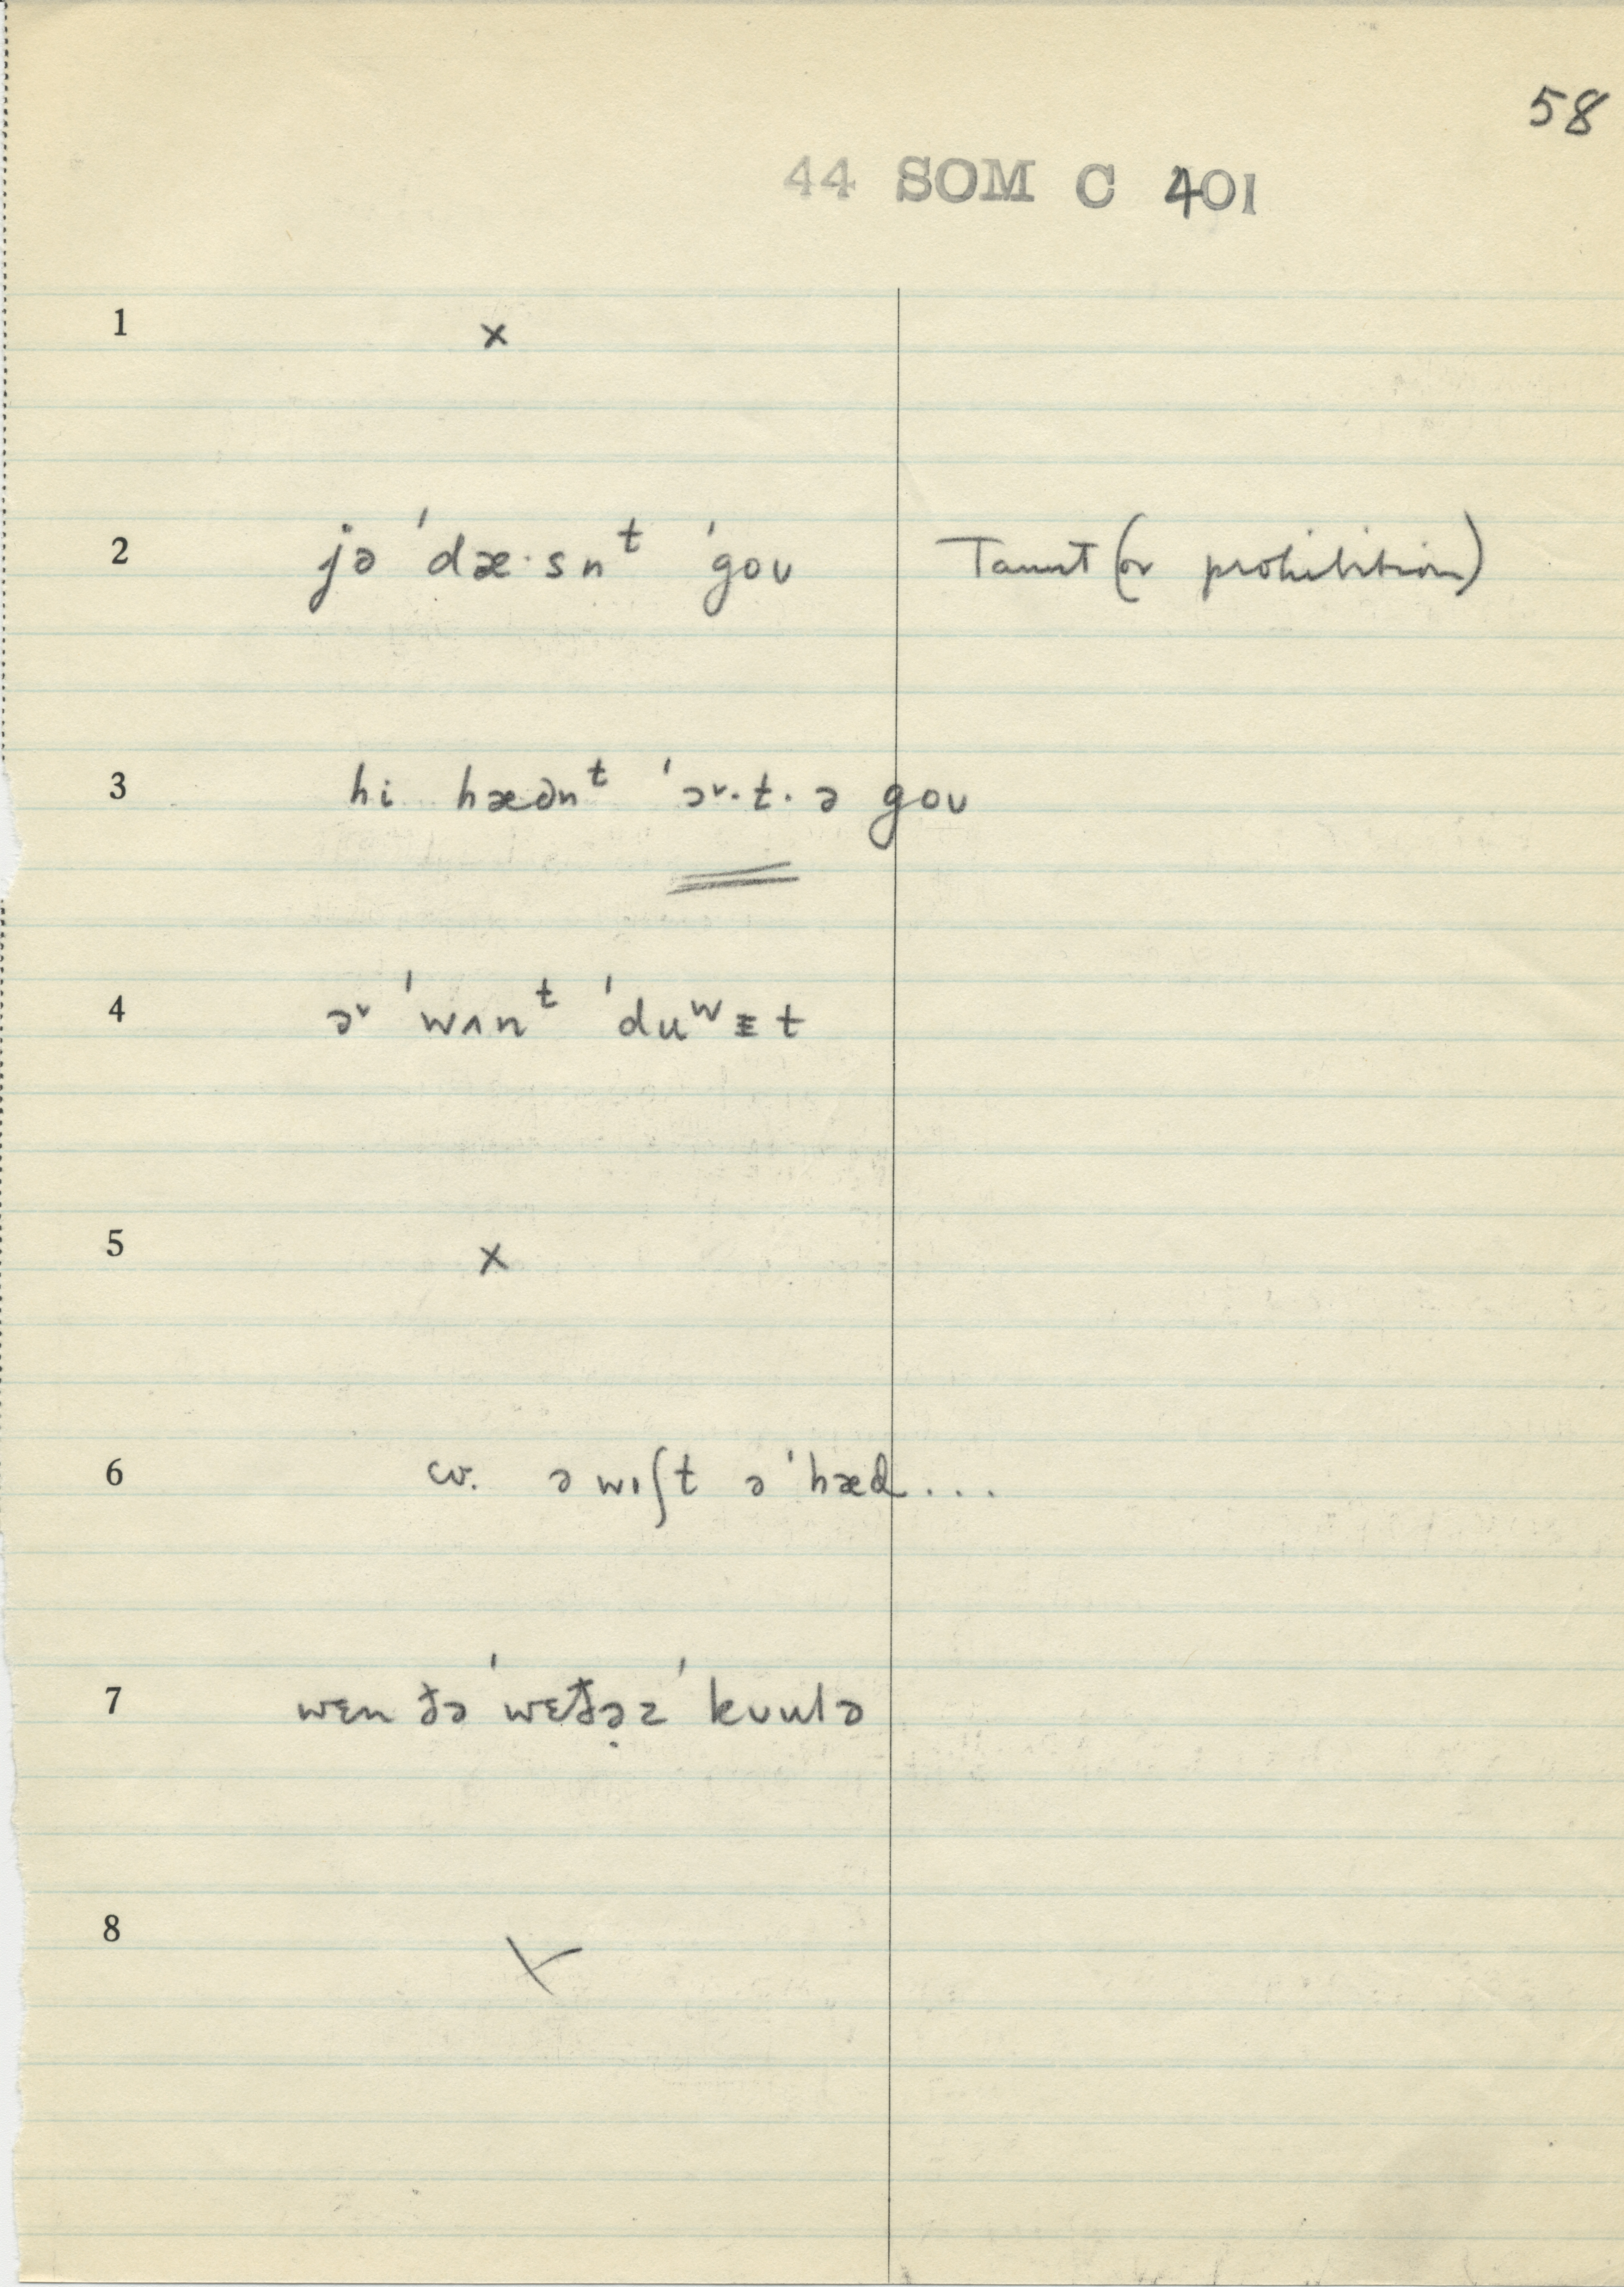 58
44 SOM C 401
1 x
2 jə ˈdæ·snᵗ ˈgoʊ Taunt (or prohibition)
3 hi hædnᵗ ˈəᵛ·t·ə goʊ
4 əᵛ ˈwʌnᵗ ˈduʷᵻt
5 x
6 cv. ə wɪʃt ə ˈhæd...
7 wɛn ðə ˈwɛðə̣z ˈkuulə
8 x